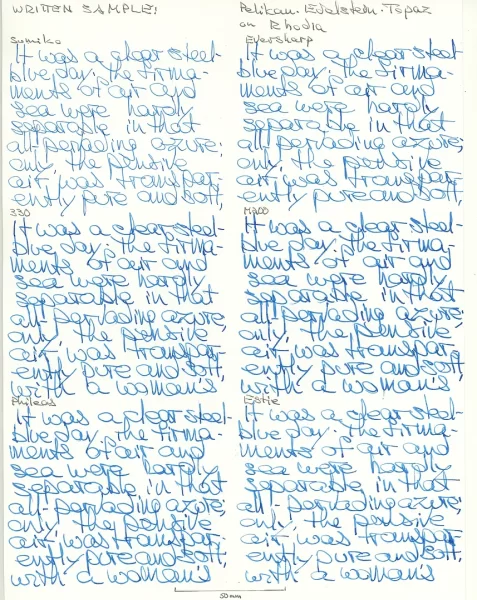 WRITTEN SAMPLE!
Pelikan. Edelstein. Topaz
on Rhodia
Sumiko
It was a clear steel-
blue day. the firma-
ments of air and
sea were hardly
separable in that
all-pervading azure;
only, the pensive
air was transpar-
ently pure and soft,
Eversharp
It was a clear steel-
blue day. the firma-
ments of air and
sea were hardly
separable in that
all-pervading azure;
only, the pensive
air was transpar-
ently pure and soft,
330
It was a clear steel-
blue day. the firma-
ments of air and
sea were hardly
separable in that
all-pervading azure;
only, the pensive
air was transpar-
ently pure and soft,
with a woman's
M200
It was a clear steel-
blue day. the firma-
ments of air and
sea were hardly
separable in that
all-pervading azure;
only, the pensive
air was transpar-
ently pure and soft,
with a woman's
Phileas
It was a clear steel-
blue day. the firma-
ments of air and
sea were hardly
separable in that
all-pervading azure;
only, the pensive
air was transpar-
ently pure and soft,
with a woman's
Estie
It was a clear steel-
blue day. the firma-
ments of air and
sea were hardly
separable in that
all-pervading azure;
only, the pensive
air was transpar-
ently pure and soft,
with a woman's
50 mm